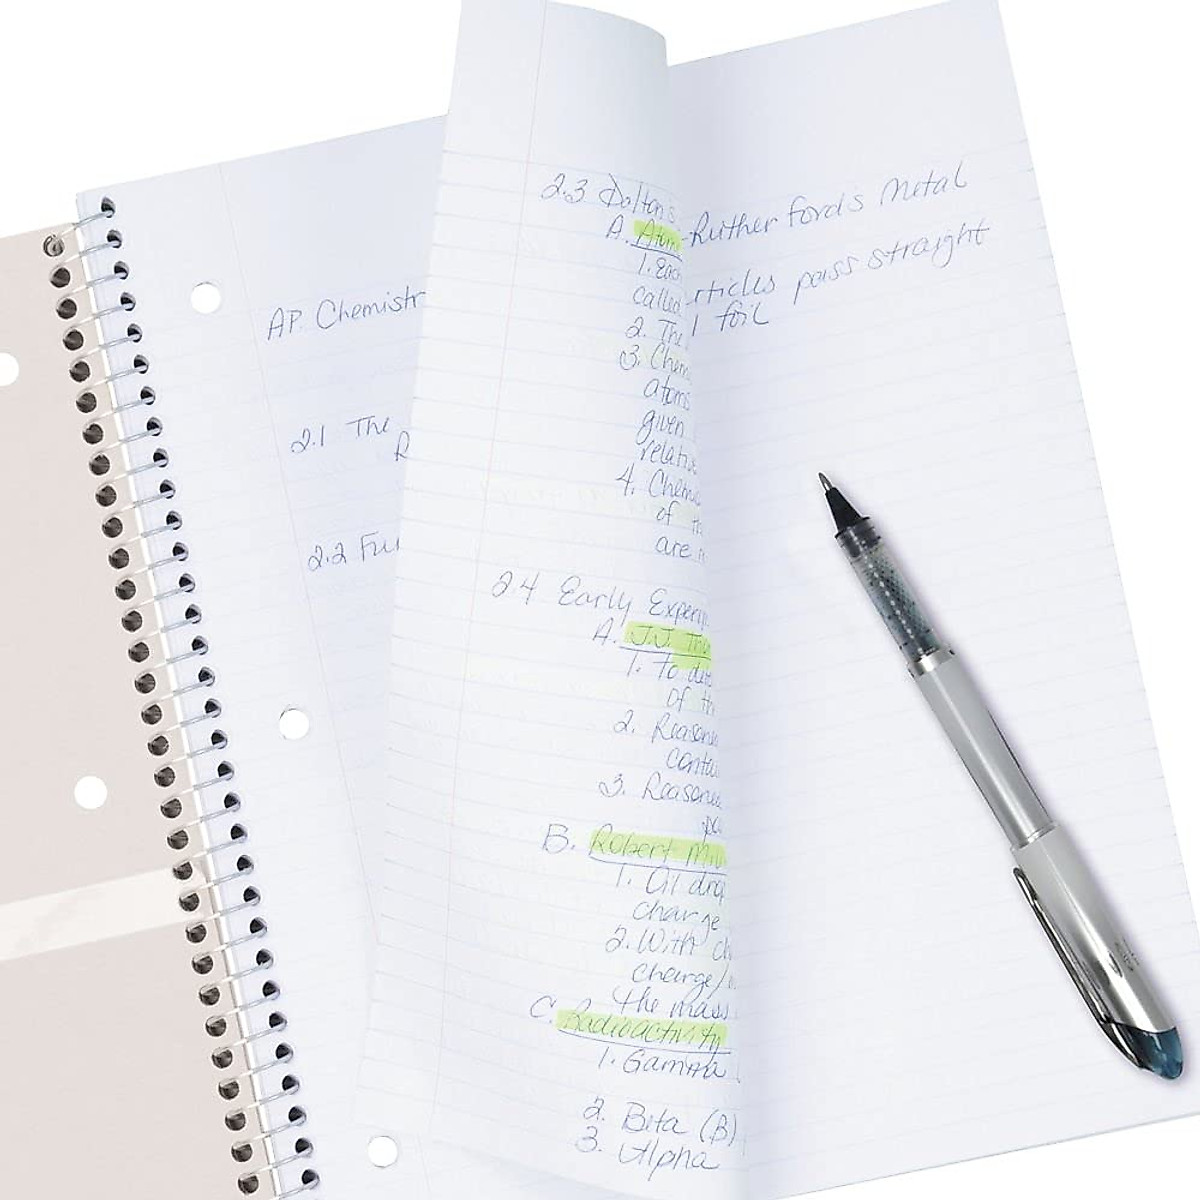 AP. Chemistr
2.1 The
R
2.2 Fu
2.3 Dalton's
A. Atom
1. Each
called
2. The
3. Chem
atoms
given
relativ
4. Chemic
of th
are n
2.4 Early Experi
A. J.J. Tho
1. To dete
of th
2. Reasone
3. Reasone
pa
B. Robert Mil
1. Oil drop
charge
2. With ch
charge/
the mass
C. Radioactivity
1. Gamma
2. Beta (B)
3. Alpha
-Rutherford's Metal
rticles pass straight
l foil